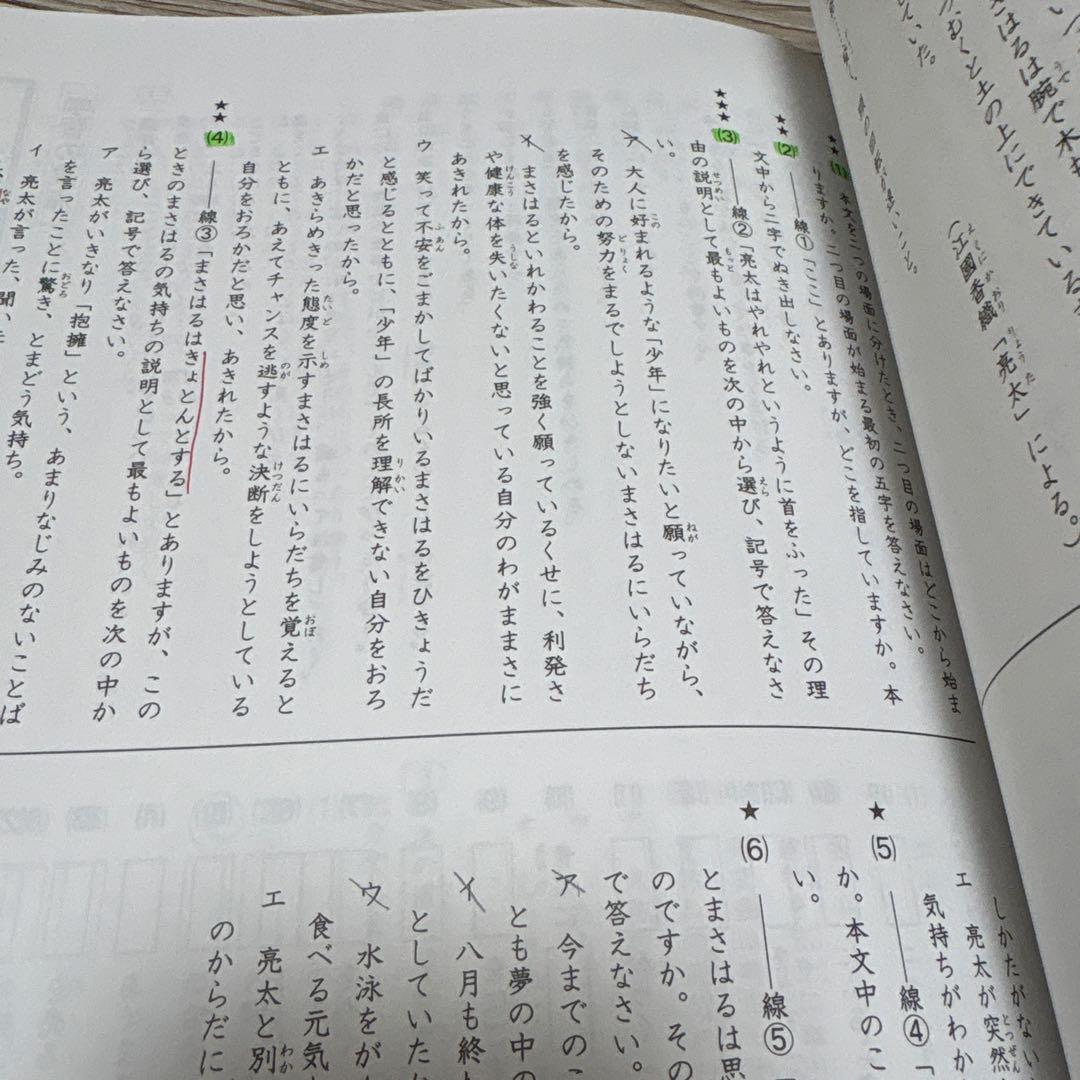 いつ
さはるは腕で木も
むくと土の上にできている
ていた。
(江國香織「亮太」による。)
★★(1) 本文を二つの場面に分けたとき、二つ目の場面はどこから始ま
りますか。二つ目の場面が始まる最初の五字を答えなさい。
★★(2) ――線①「ここ」とありますが、どこを指していますか。本
文中から二字でぬき出しなさい。
★★★(3) ――線②「亮太はやれやれというように首をふった」その理
由の説明として最もよいものを次の中から選び、記号で答えなさ
い。
ア 大人に好まれるような「少年」になりたいと願っていながら、
そのための努力をまるでしようとしないまさはるにいらだち
を感じたから。
イ まさはるといれかわることを強く願っているくせに、利発さ
や健康な体を失いたくないと思っている自分のわがままさに
あきれたから。
ウ 笑って不安をごまかしてばかりいるまさはるをひきょうだ
と感じるとともに、「少年」の長所を理解できない自分をおろ
かだと思ったから。
エ あきらめきった態度を示すまさはるにいらだちを覚えると
ともに、あえてチャンスを逃すような決断をしようとしている
自分をおろかだと思い、あきれたから。
★★(4) ――線③「まさはるはきょとんとする」とありますが、この
ときのまさはるの気持ちの説明として最もよいものを次の中か
ら選び、記号で答えなさい。
ア 亮太がいきなり「抱擁」という、あまりなじみのないことば
を言ったことに驚き、とまどう気持ち。
イ 亮太が言った、聞いた
しかたがない
エ 亮太が突然
気持ちがわか
★(5) ――線④「
か。本文中のこ
い。
★(6) ――線⑤「
とまさはるは思
のですか。その
で答えなさい。
ア 今までのこ
とも夢の中の
イ 八月も終
としていた
ウ 水泳をが
食べる元気
エ 亮太と別
のからだに